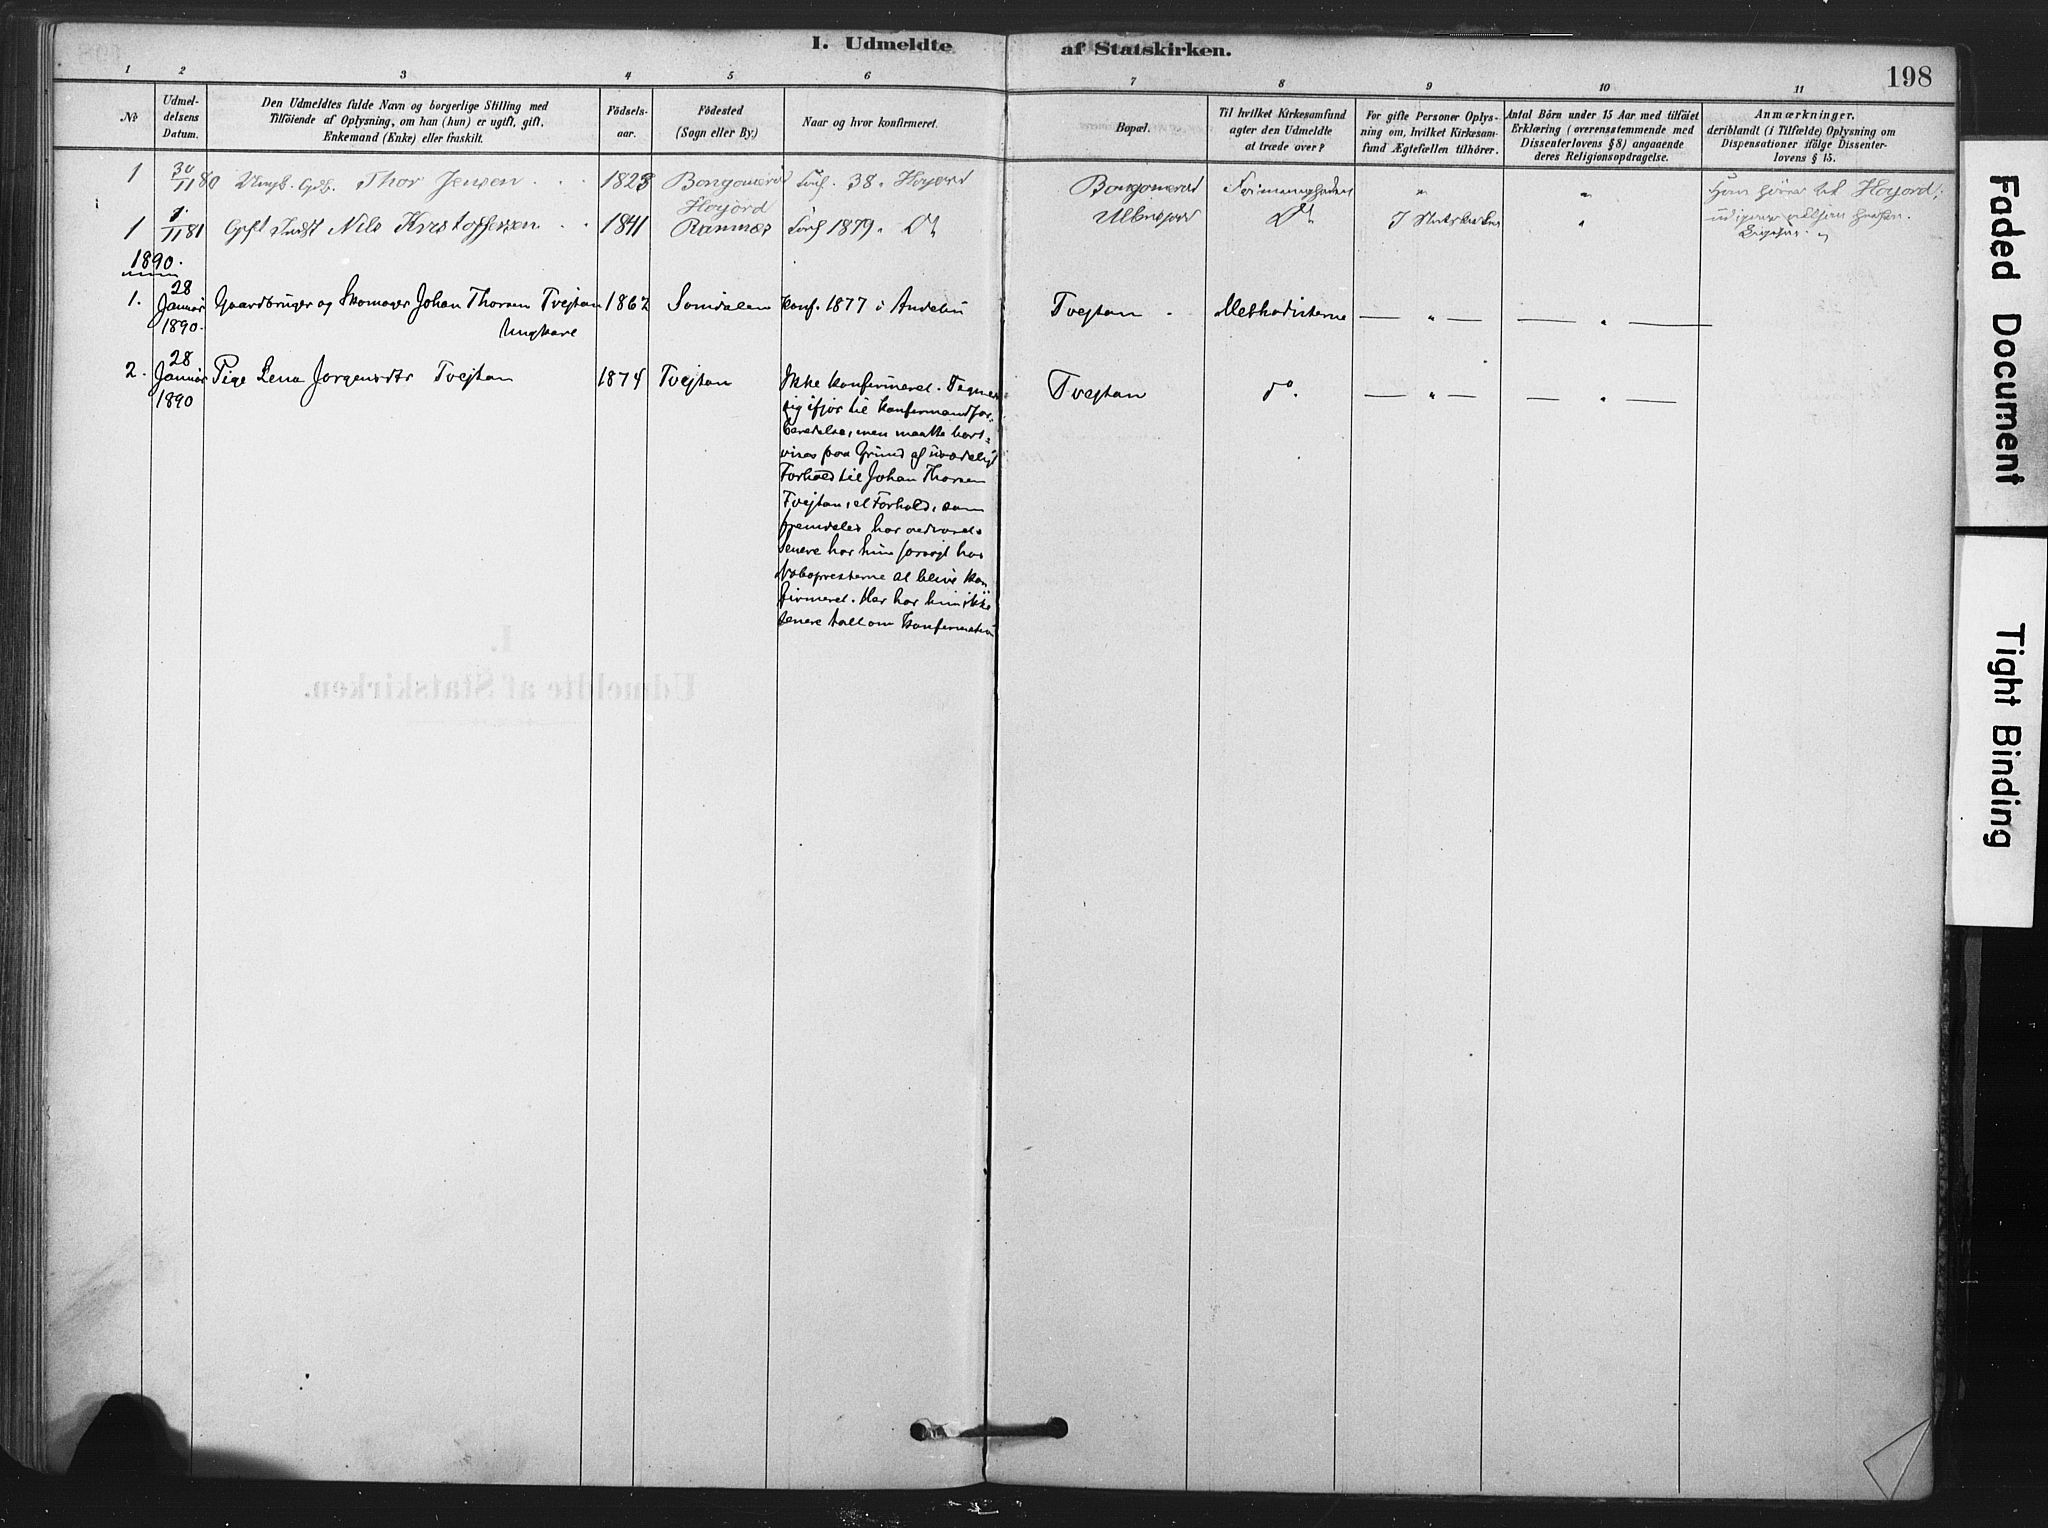 I. Udmeldte af Statskirken.
198
1 2 3 4 5 6 7 8 9 10 11
No
Udmel-
delsens
Datum.
Den Udmeldtes fulde Navn og borgerlige Stilling med
Tilföiende af Oplysning, om han (hun) er ugift, gift,
Enkemand (Enke) eller fraskilt.
Födsels-
aar.
Födested
(Sogn eller By.)
Naar og hvor konfirmeret.
Bopæl.
Til hvilket Kirkesamfund
agter den Udmeldte
at træde over?
For gifte Personer Oplys-
ning om, hvilket Kirkesam-
fund Ægtefællen tilhörer.
Antal Börn under 15 Aar med tilföiet
Erklæring (overensstemmende med
Dissenterlovens § 8) angaaende
deres Religionsopdragelse.
Anmærkninger.
deriblandt (i Tilfælde) Oplysning om
Dispensationer ifölge Dissenter-
lovens § 15.
1 30/11 80 Ungk. Thor Jensen 1823 38. Hojord
Hojord
1 1/11 81 Gift Nils Kristoffersen 1841 1879.
1890.
1. 28 Januar 1890. Gaardbruger og Skomager Johan Thorsen Tvejtan 1862 konf. 1877 i Andebu Tvejtan Methodisterne — " — — " —
Ungkare
2. 28 Januar 1890 Pige Lena Jorgensdtr Tvejtan 1874 Tvejtan Ikke konfirmeret. Tvejtan do. — " — — " —
sig ifjor til konfirmandfor-
beredelse, men maatte bort-
vises paa Grund af
Forhold til Johan Thorsen
Tvejtan, et Forhold, som
fremdeles har vedvaret.
Senere har hun forsøgt hos
Nabopresterne at blive kon
firmeret. Her har hun ikke
senere talt om Konfirmation
I.
Udmeldte af Statskirken.
Faded Document
Tight Binding